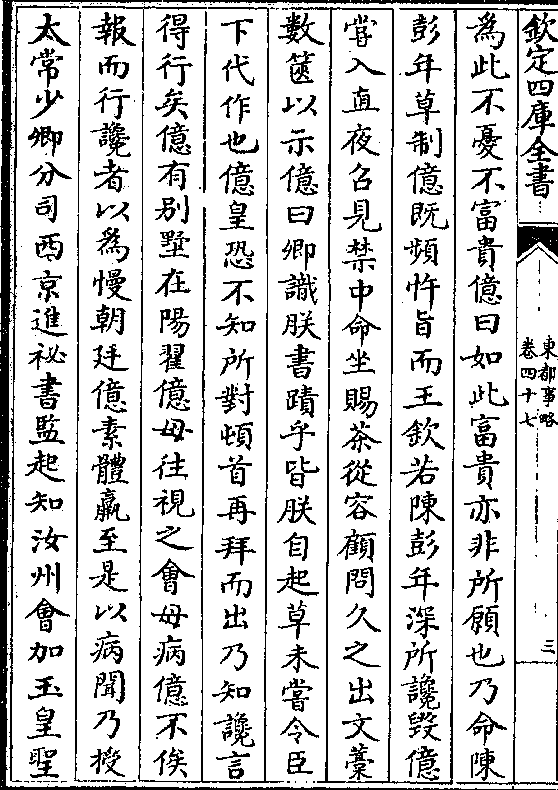 欽定四庫全書
東都事略
卷四十七
三
為此不憂不富貴億曰如此富貴亦非所願也乃命陳
彭年草制億既頻忤旨而王欽若陳彭年深所讒毀億
嘗入直夜召見禁中命坐賜茶從容顧問久之出文藁
數篋以示億曰卿識朕書蹟乎皆朕自起草未嘗令臣
下代作也億皇恐不知所對頓首再拜而出乃知讒言
得行矣億有别墅在陽翟億母往視之會母病億不俟
報而行讒者以為慢朝廷億素體羸至是以病聞乃授
太常少卿分司西京進祕書監起知汝州會加玉皇聖